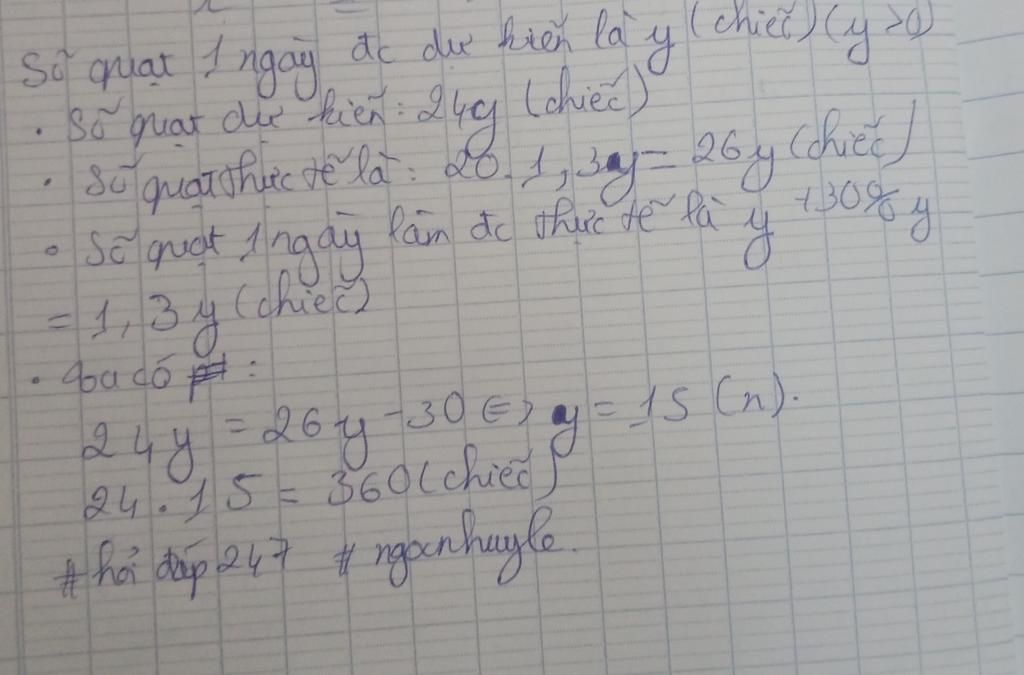 Số quạt 1 ngày đc dự kiến là y (chiếc) (y>0)
. Số quạt dự kiến: 24y (chiếc)
. Số quạt thực tế là: 20.1,3y = 26y (chiếc)
. Số quạt 1 ngày làm đc thực tế là y +30% y
= 1,3y (chiếc)
. Ta có :
24y = 26y - 30 <=> y = 15 (n).
24.15 = 360 (chiếc)
# hỏi đáp 247 # ngocnhuyle.